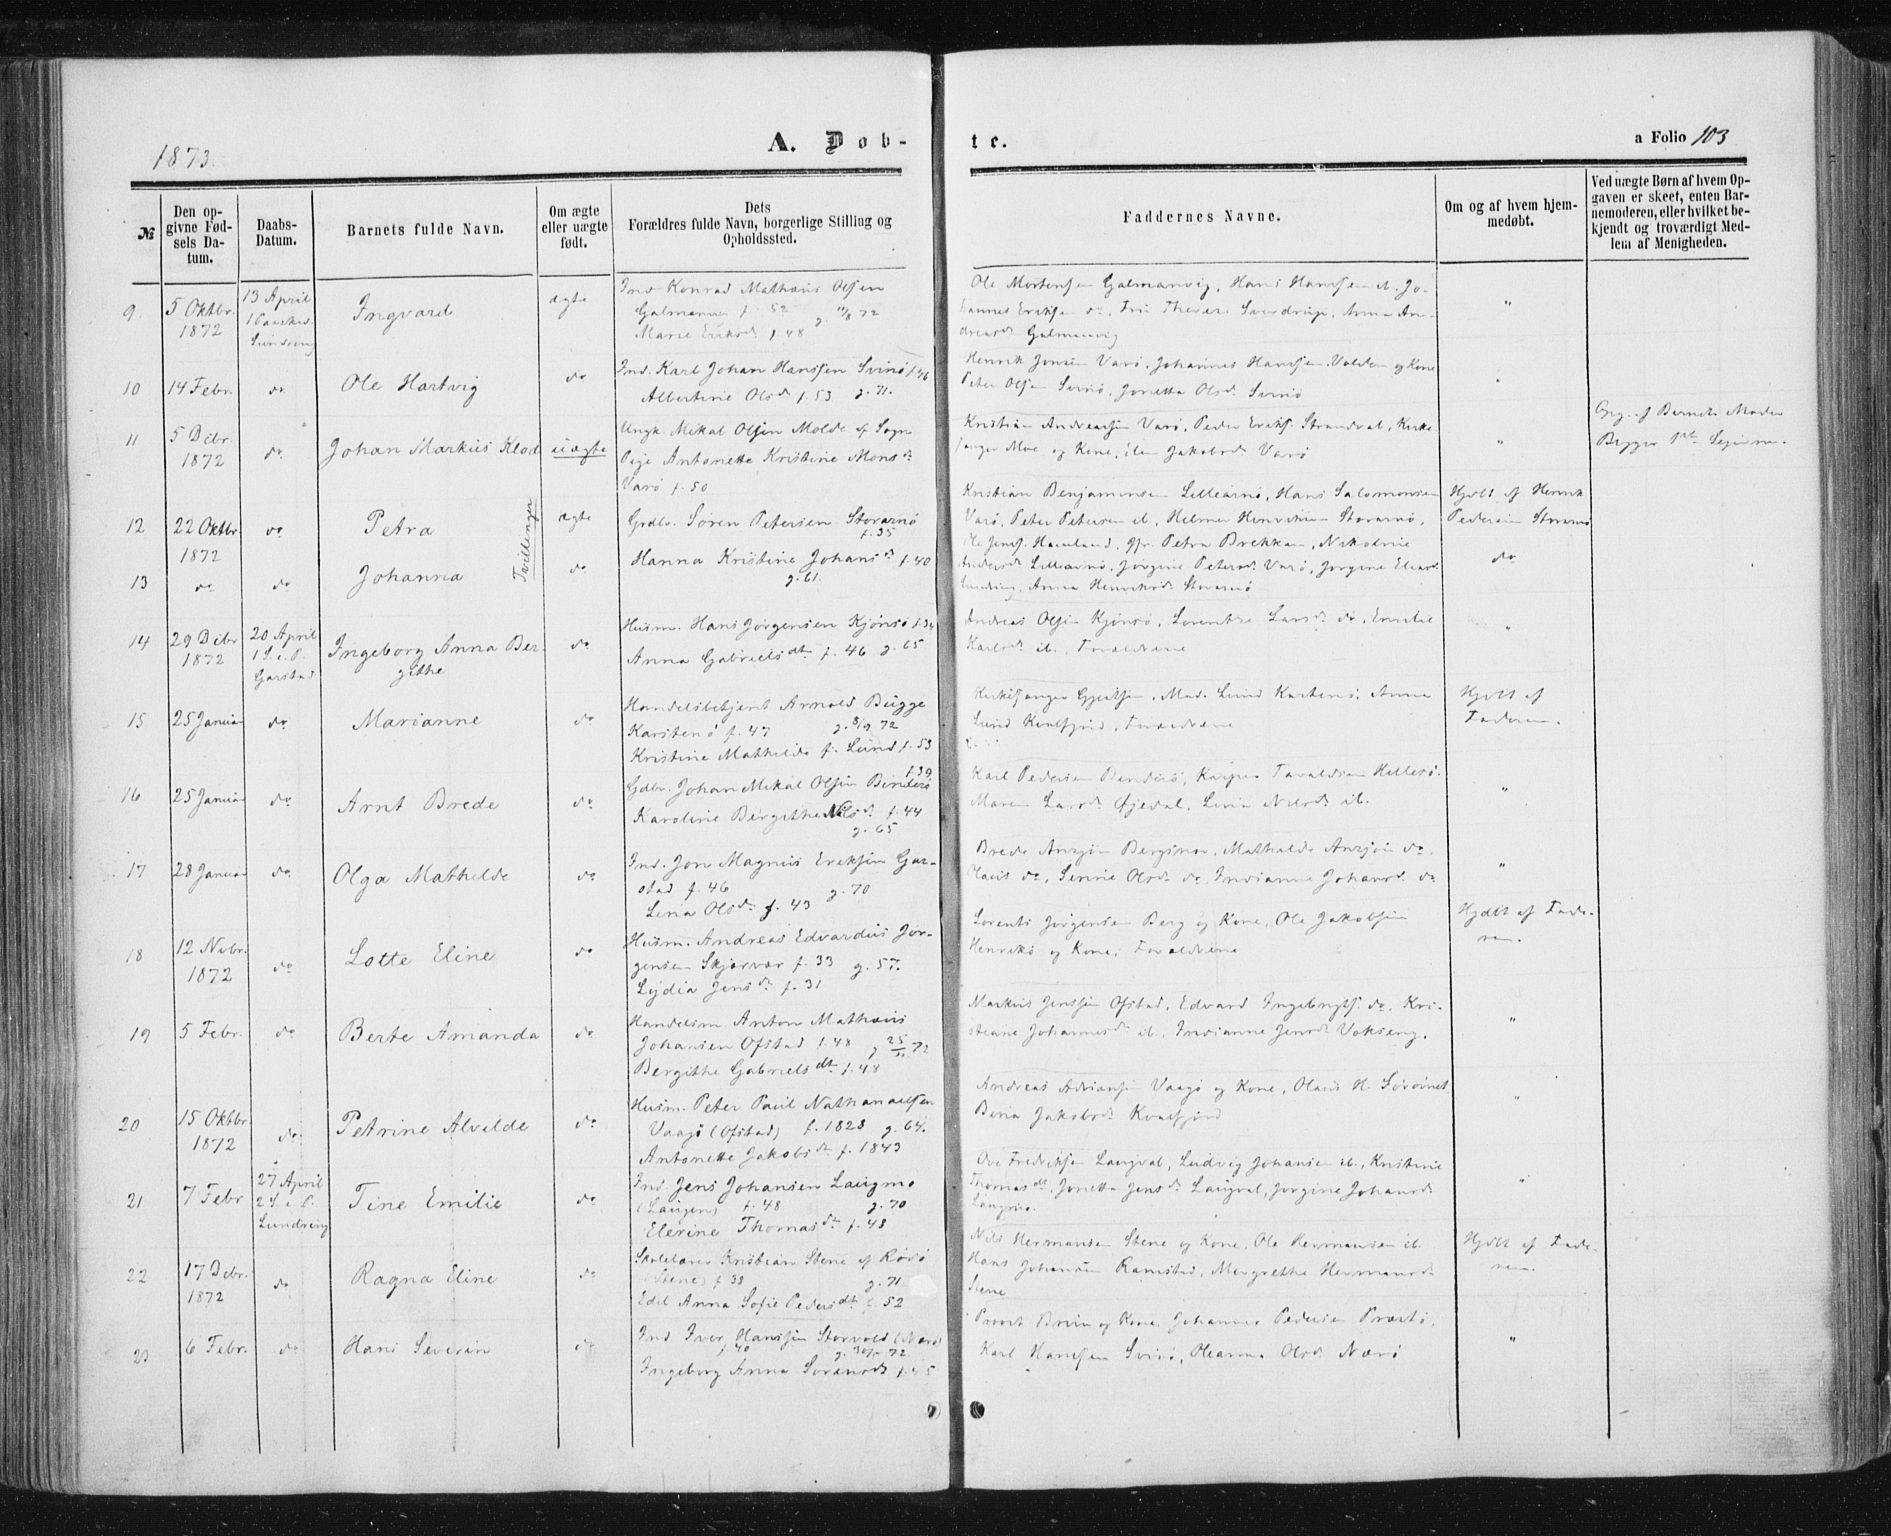 1873.
A. Døb-
te.
a Folio 103
№
Den op-
givne Fød-
sels Da-
tum.
Daabs-
Datum.
Barnets fulde Navn.
Om ægte
eller uægte
født.
Dets
Forældres fulde Navn, borgerlige Stilling og
Opholdssted.
Faddernes Navne.
Om og af hvem hjem-
medøbt.
Ved uægte Børn af hvem Op-
gaven er skeet, enten Bar-
nemoderen, eller hvilket be-
kjendt og troværdigt Med-
lem af Menigheden.
9
5 Oktbr.
1872
13 April
Ingvard
ægte
Ind. Konrad Mathæus Olsen
f. 52
g. 11/8 72
Marie Eriksd. f. 48
Ole Mortensen Galmanvig, Hans Hansen ib. Jo-
hannes Eriksen do, Sverdrup, Anna An-
Galmanvig
"
10
14 Febr.
do
Ole Hartvig
do
Ind. Karl Johan Hanssen Svinø f. 46
Albertine Olsd. f. 53 g. 71.
Henrik Varø, Johannes Hanssen og Kone
Peter Olsen Svinø, Jonetta Olsd. Svinø
"
11
5 Dcbr.
1872
do
Johan Markus Klod
uægte
Ungk. Mikal Olsen Molde af Sogn
Pige Antonette Kristine Monsd.
Varø f. 50
Kristian Andreassen Varø, Peder Eriks. Strandval, Kirke-
sanger Moe og Kone, Jakobsd. Varø
"
Opg. af Barnets Moder
12
22 Oktbr.
1872
do
Petra
Tvillinger
ægte
Grdbr. Søren Petersen Storarnø
f. 35
Hanna Kristine Johansd. f. 40
g. 61.
Kristian Benjaminsen Lillearnø, Hans Salomonsen
Varø, Peter Petersen ib, Helmer Henriksen Storarnø,
Petra Brekkan, Nikoline
Lillearnø, Jørgine Petersd. Varø, Jørgine
Anna Henriksd. Storarnø
Hjdbt af Henrik
Pedersen Storarnø
13
do
do
Johanna
do
do
14
29 Dcbr.
1872
20 April
1 S. e. P.
Garstad
Ingeborg Anna Ber-
githe
do
Husm. Hans Jørgensen Kjønsø f. 34
Anna Gabrielsdt. f. 46 g. 65
Andreas Olsen Kjønsø, Lorentze Larsd. do, Emilie
Karlsd. ib. Forældrene
"
15
25 Januar
do
Marianne
do
Handelsbetjent Arnold Bugge
Karstenø f. 47 g. 8/9 72
Kristine Mathilde f. Lund f. 53
Kirkesanger Mad. Lund Karstenø, Anna
Lund Kvalfjord, Forældrene
Hjdbt af
Faderen.
16
25 Januar
do
Arnt Brede
do
f. 39
Gdbr. Johan Mikal Olsen Binderø
Karoline Bergithe Nilsd. f. 44
g. 65
Karl Pedersen Binderø, Kasper Hillersø.
Maren Larsd. Øjedal, Nilsd. ib.
"
17
28 Januar
do
Olga Mathilde
do
Ind. Jon Magnus Eriksen Gar-
stad f. 46 g. 70
Lina Olsd. f. 43
Brede Anzjøn Bergsnov, Mathilde Anzjøn do,
Olaus do, Olsd. do, Indianna Johansd. do
"
18
12 Nvbr.
1872
do
Lotte Eline
do
Husm. Andreas Edvardus Jør-
gensen Skjærvær f. 33 g. 57.
Lydia Jensd. f. 31
Lorents Jørgensen Berg og Kone, Ole Jakobsen
Henrikø og Kone, Forældrene
Hjdbt af Fade-
ren.
19
5 Febr.
do
Berte Amanda
do
Handelsm. Anton Mathæus
Johansen Ofstad f. 48 g. 25/11 72
Bergithe Gabrielsdt. f. 48
Markus Jenssen Ofstad, Edvard Ingebrigts. do, Kri-
stiane Johannesd. ib, Indianna Jensd. Vokseng.
"
20
15 Oktbr.
1872
do.
Petrine Alvilde
do
Husm. Peter Paul Nathanaelsen
Vaagø (Ofstad) f. 1828 g. 64.
Antonette Jakobsd. f. 1843
Andreas Adriansen Vaagø og Kone, Olaus H. Sørøines
Beria Jakobsd. Kvalfjord
"
21
7 Febr.
27 April
2 S. e. P.
Lundring
Tine Emilie
do
Ind. Jens Johansen Laugmo
(Laugen) f. 48 g. 70
Elerine Thomasd. f. 48
Ove Fredriksen Laugval, Ludvig Johansen ib., Kristine
Thomasdt., Jonetta Jensd. Laugval, Jørgine Johansd.
Laugmo.
"
22
17 Dcbr.
1872
do
Ragna Eline
do
Skolelærer Kristian Stene af Rørø
(Stene) f. 38 g. 71
Edel Anna Sofie Pedersdt. f. 52
Nils Hermansen Stene og Kone, Ole Hermansen ib.
Hans Johansen Ramstad, Mergrethe Hermansd.
Stene
Hjdbt af Fade-
ren.
23
6 Febr.
do
Hans Severin
do
Ind. Iver Hanssen Storvold (Nærø)
f. 40 72
Ingeborg Anna Sørensd. f. 45
Provst Bruun og Kone, Johannes Pedersen Præstø,
Karl Hanssen Svinø, Oleanna Olsd. Nærø
"